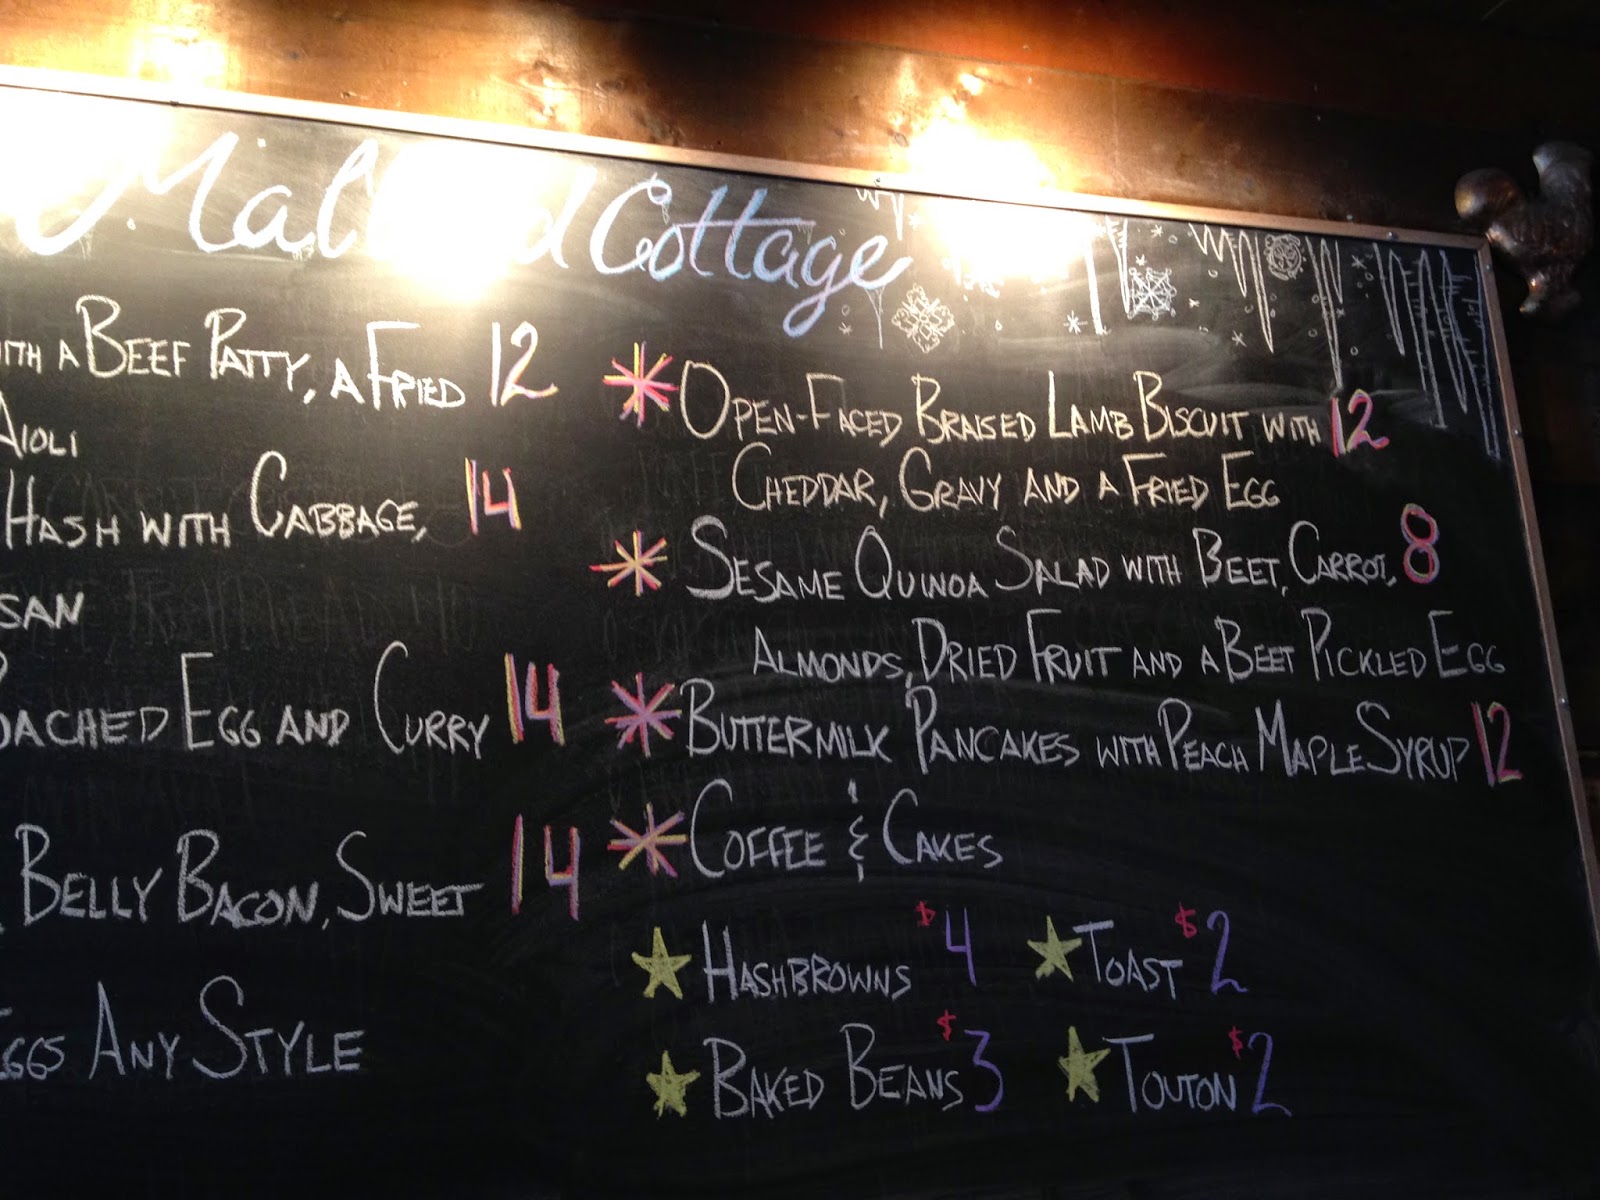 Cottage
WITH A BEEF PATTY, A FRIED 12
AIOLI
HASH WITH CABBAGE, 14
POACHED EGG AND CURRY 14
BELLY BACON, SWEET 14
EGGS ANY STYLE
OPEN-FACED BRAISED LAMB BISCUIT WITH 12
CHEDDAR, GRAVY AND A FRIED EGG
SESAME QUINOA SALAD WITH BEET, CARROT, 8
ALMONDS, DRIED FRUIT AND A BEET PICKLED EGG
BUTTERMILK PANCAKES WITH PEACH MAPLE SYRUP 12
COFFEE & CAKES
HASHBROWNS $4 TOAST $2
BAKED BEANS $3 TOUTON $2